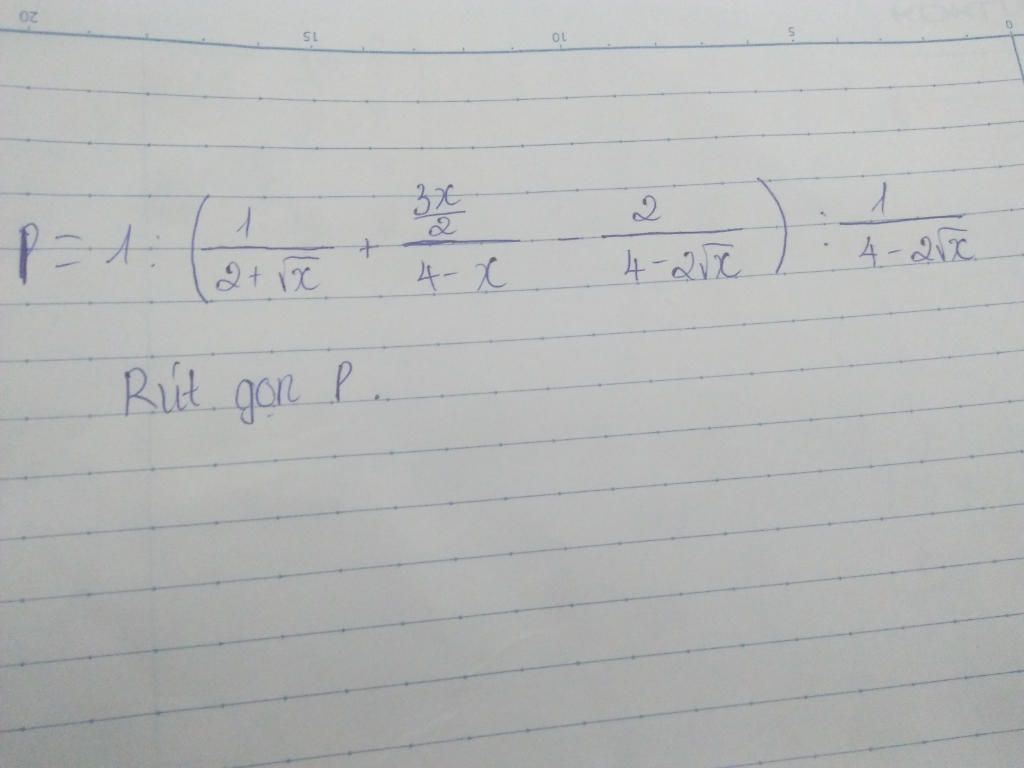 20 15 10 5 0
P = 1 : ( \frac{1}{2+\sqrt{x}} + \frac{\frac{3x}{2}}{4-x} - \frac{2}{4-2\sqrt{x}} ) : \frac{1}{4-2\sqrt{x}}
Rút gọn P.